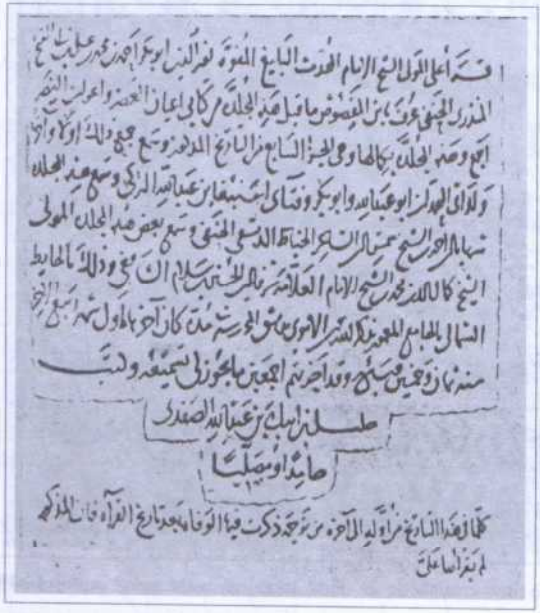 قرأ على المولى الشيخ الإمام المحدث البليغ المفوه فخر الدين أبو بكر أحمد بن محمد بن علي بن الشيخ
الحنفي عرف بابن ما قبل هذه المجلدة من كتابي أعيان العصر وأعوان النصر
أجمع وهذه المجلدة بكمالها وهي الجزء السابع من التاريخ المذكور وسمع جميع ذلك أولاً وآخراً
ولداي المحمدان أبو عبد الله وأبو بكر وفتاي بن عبد الله التركي وسمع هذه المجلدة
الشيخ الدمشقي الحنفي وسمع بعض هذه المجلدة المولى
الشيخ كمال الدين محمد بن الشيخ الإمام العلامة وذلك بالحائط
الشمالي بالجامع المعمور بذكر الله تعالى الأموي بدمشق المحروسة مدة كان آخرها أول شهر ربيع الآخر
سنة ثمان وخمسين وسبع وقد أجزتهم أجمعين ما يجوز لي تسميعه وكتب
خليل بن أيبك بن عبد الله الصفدي
حامداً ومصلياً
كلما في هذا التاريخ من أوله إلى آخره من ترجمة ذكرت فيها الوفاة بعد تاريخ القراءة فإن المذكور
لم يقرأها علي